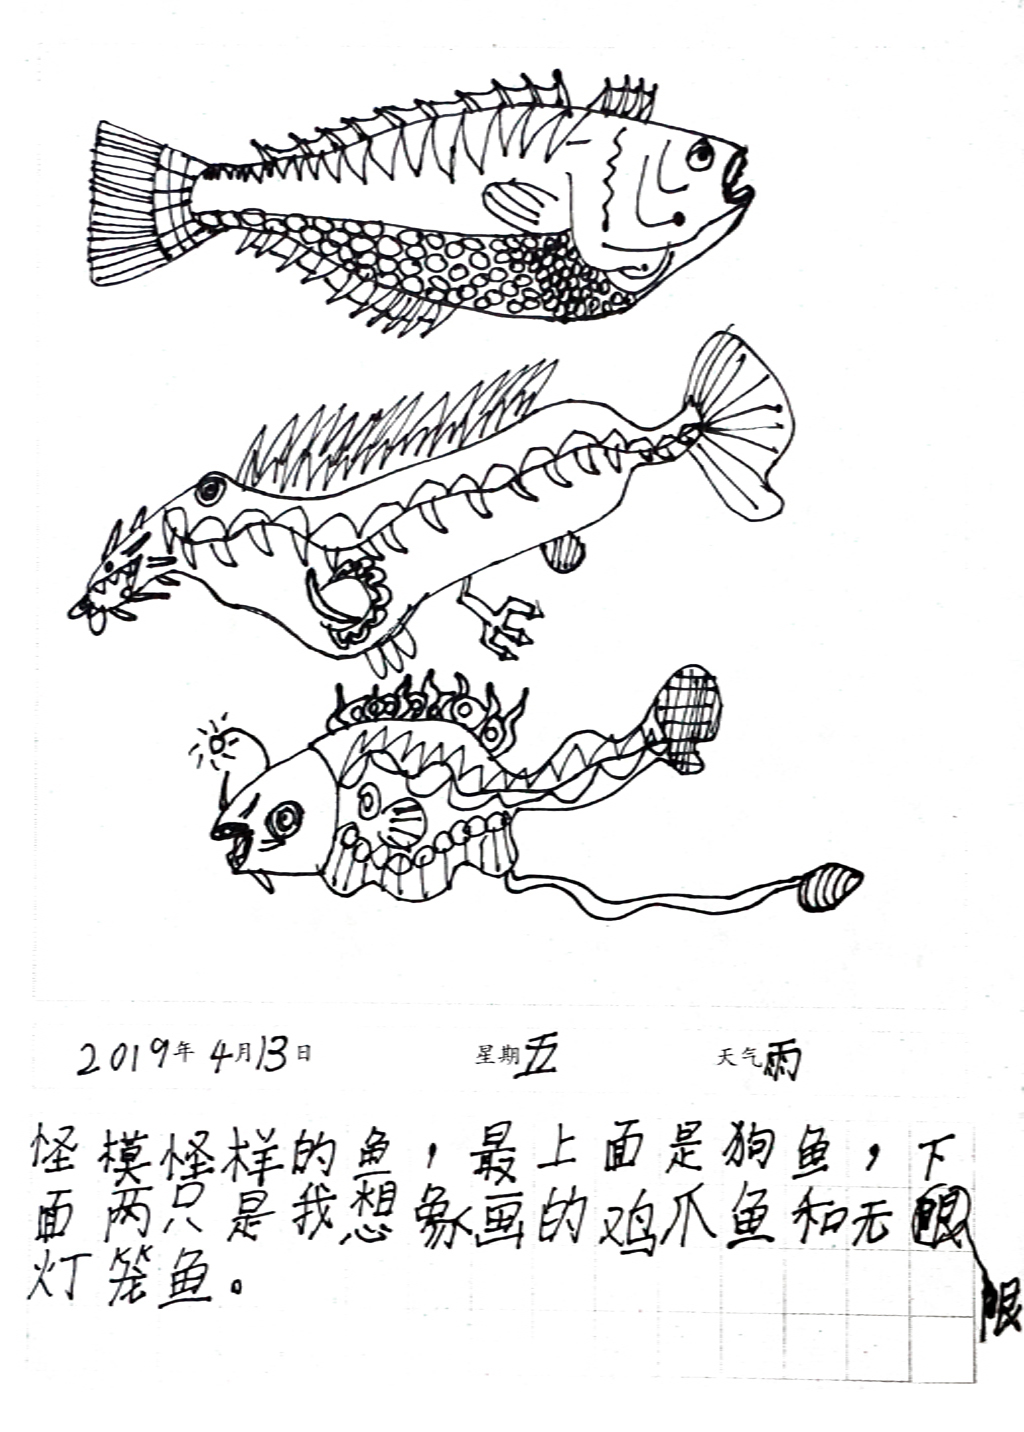 2019年 4月13日 星期五 天气雨
怪模怪样的鱼，最上面是狗鱼，下
面两只是我想象画的鸡爪鱼和无限
灯笼鱼。